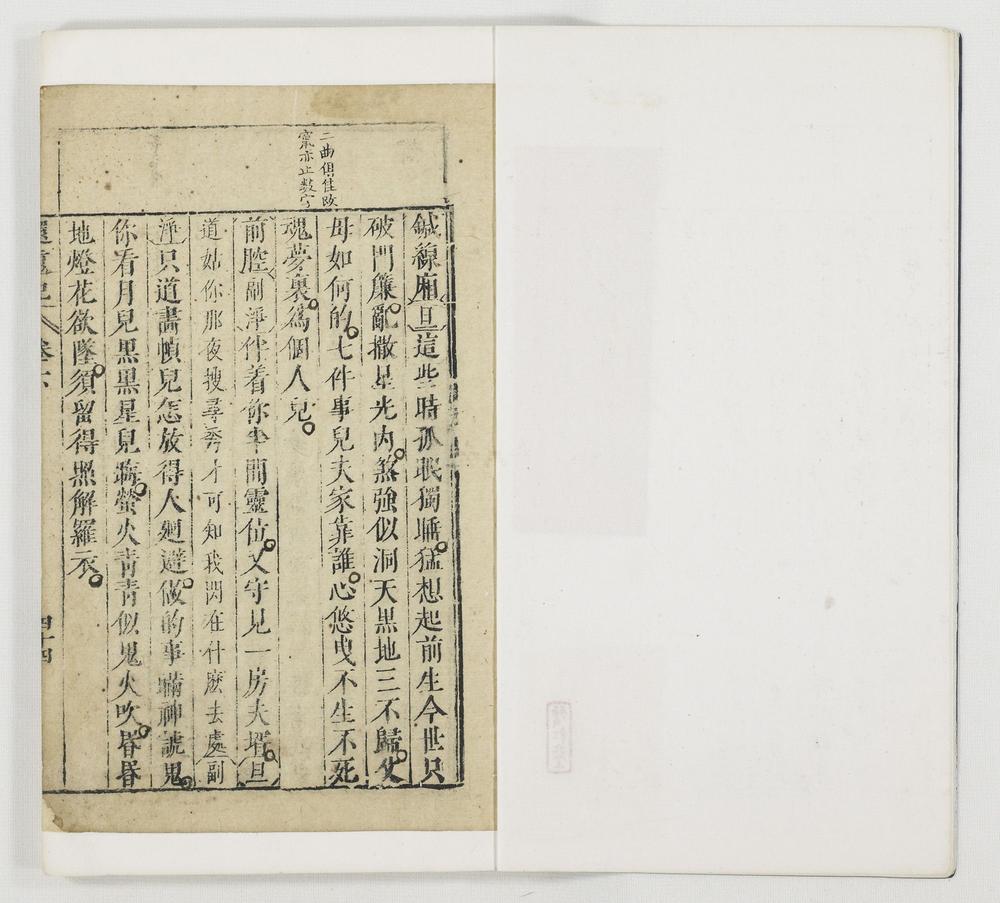 二曲俱佳改
竄亦止數字
鍼線廂旦這些時孤眠獨聽猛想起前生今世只
破門簾亂撒星光內煞強似洞天黑地三不歸父
母如何的七件事兒夫家靠誰心悠曳不生不死
魂夢裏爲個人兒
前腔副淨伴着你半間靈位又守見一房夫壻旦
道姑你那夜搜尋秀才可知我閃在什麽去處副
淨只道畵幀兒怎放得人廻避做的事瞞神諕鬼
你看月兒黑黑星兒晦螢火青青似鬼火吹昏昏
地燈花欲墜須留得照解羅衣
還魂記 卷六
四十四